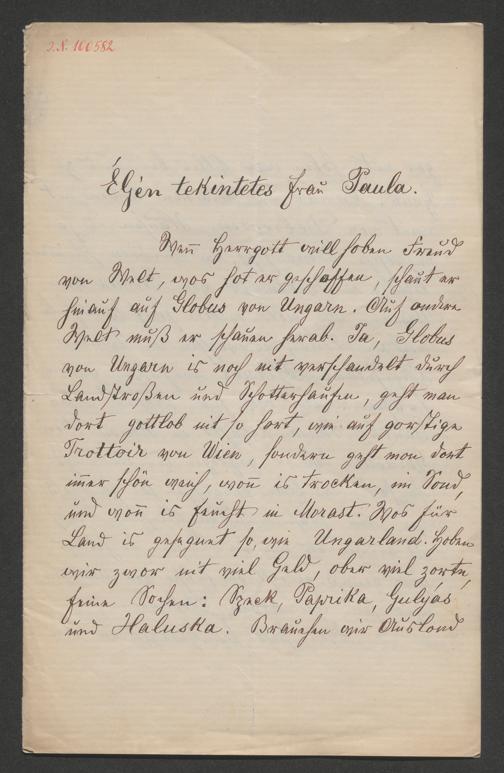 J.N. 100582
Éljen tekintetes Frau Paula.
Weñ Herrgott will hoben Freud
von Welt, wos hot er geschoffen, schaut er
hinauf auf Globus von Ungarn. Auf ondere
Welt muß er schauen herab. Ja, Globus
von Ungarn is noch nit verschandelt durch
Landstroßen und Schotterhaufen, geht man
dort gottlob nit so hort, wie auf gorstige
Trottoir von Wien, sondern geht mon dort
im̄er schön weich, woñ is trocken, im Sond,
und woñ is feucht in Morast. Wos für
Land is gesegnet so, wie Ungarland. Hoben
wir zwor nit viel Geld, ober viel zorte,
feine Sochen: Szpeck, Paprika, Gulyas
und Haluska. Brauchen wir Auslond